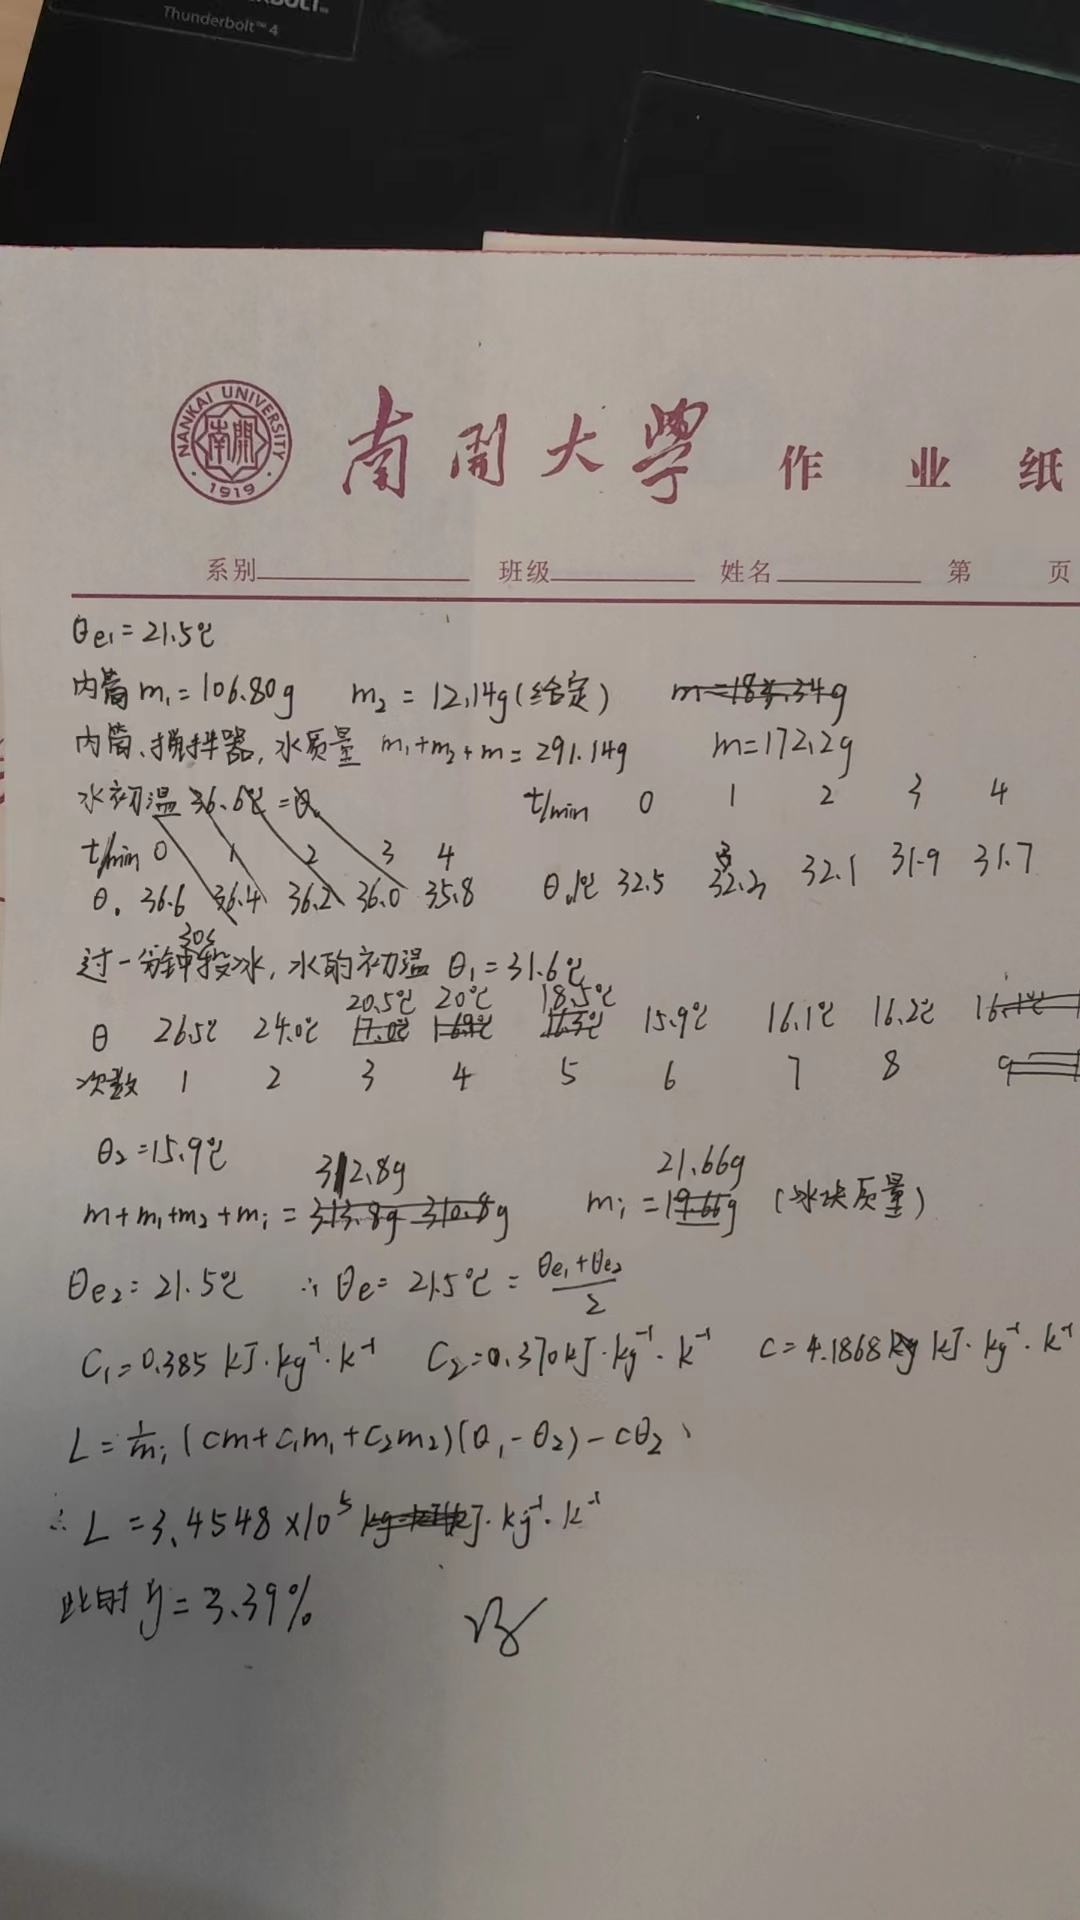 Thunderbolt™ 4
NANKAI UNIVERSITY
南開
1919
南開大學 作业纸
系别 班级 姓名 第 页
θe₁ = 21.5℃
内筒 m₁ = 106.80g m₂ = 12.14g (给定)
内筒、搅拌器,水质量 m₁+m₂+m = 291.14g m=172.2g
水初温 36.6℃ = θ₀
t/min 0 1 2 3 4
t/min 0 1 2 3 4
θ₀ 36.6 36.4 36.2 36.0 35.8
θ₀/℃ 32.5 32.3 32.1 31.9 31.7
30s
过一分钟投冰, 水的初温 θ₁ = 31.6℃
20.5℃ 20℃ 18.5℃
θ 26.5℃ 24.0℃ 15.9℃ 16.1℃ 16.2℃
次数 1 2 3 4 5 6 7 8 9
θ₂ = 15.9℃
312.8g 21.66g
m+m₁+m₂+mᵢ = 313.8g 310.8g mᵢ = 19.66g (冰块质量)
θe₂ = 21.5℃ ∴ θe = 21.5℃ = (θe₁+θe₂)/2
C₁ = 0.385 kJ·kg⁻¹·k⁻¹ C₂ = 0.370 kJ·kg⁻¹·k⁻¹ C = 4.1868 kJ·kg⁻¹·k⁻¹
L = 1/mᵢ (cm+c₁m₁+c₂m₂)(θ₁-θ₂)-cθ₂
∴ L = 3.4548×10⁵ J·kg⁻¹·k⁻¹
此时 η = 3.39%